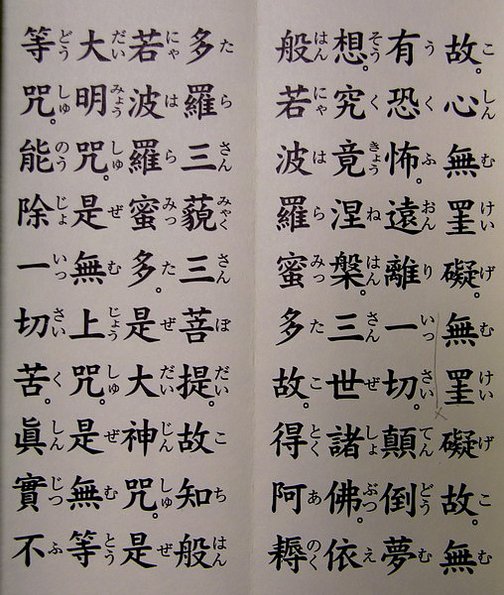 故。心無罣礙。無罣礙故。無
こしんむけいげむけいげこむ
有恐怖。遠離一切顛倒夢
うくふおんりいっさいてんどうむ
想。究竟涅槃。三世諸佛。依
そうくきょうねはんさんぜしょぶつえ
般若波羅蜜多故。得阿耨
はんにゃはらみったことくあのく
多羅三藐三菩提。故知般
たらさんみゃくさんぼだいこちはん
若波羅蜜多。是大神咒。是
にゃはらみったぜだいじんしゅぜ
大明咒。是無上咒。是無等
だいみょうしゅぜむじょうしゅぜむとう
等咒。能除一切苦。眞實不
どうしゅのうじょいっさいくしんじつふ